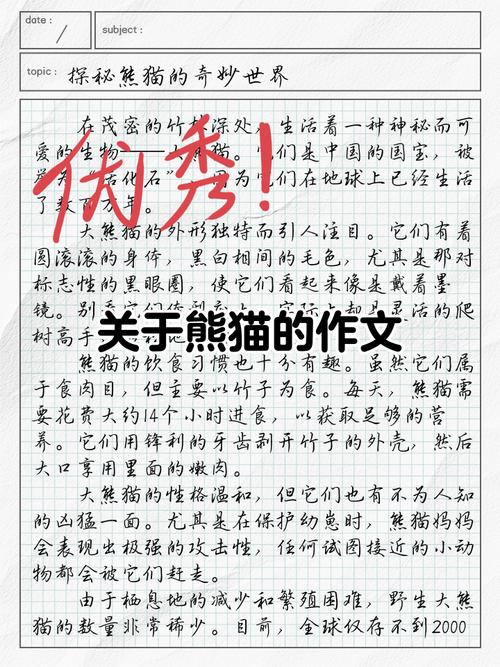 date :
subject :
topic : 探秘熊猫的奇妙世界
在茂密的竹林深处，生活着一种神秘而可
爱的生物——大熊猫。它们是中国的国宝，被
“活化石”，因为它们在地球上已经生活
了数百万年。
优秀！
大熊猫的外形独特而引人注目。它们有着
圆滚滚的身体，黑白相间的毛色，尤其是那对
标志性的黑眼圈，使它们看起来像是戴着墨
镜。别看它们体型
树高手
灵活的爬
关于熊猫的作文
熊猫的饮食习惯也十分有趣。虽然它们属
于食肉目，但主要以竹子为食。每天，熊猫需
要花费大约14个小时进食，以获取足够的营
养。它们用锋利的牙齿剥开竹子的外壳，然后
大口享用里面的嫩肉。
大熊猫的性格温和，但它们也有不为人知
的凶猛一面。尤其是在保护幼崽时，熊猫妈妈
会表现出极强的攻击性，任何试图接近的小动
物都会被它们赶走。
由于栖息地的减少和繁殖困难，野生大熊
猫的数量非常稀少。目前，全球仅存不到2000